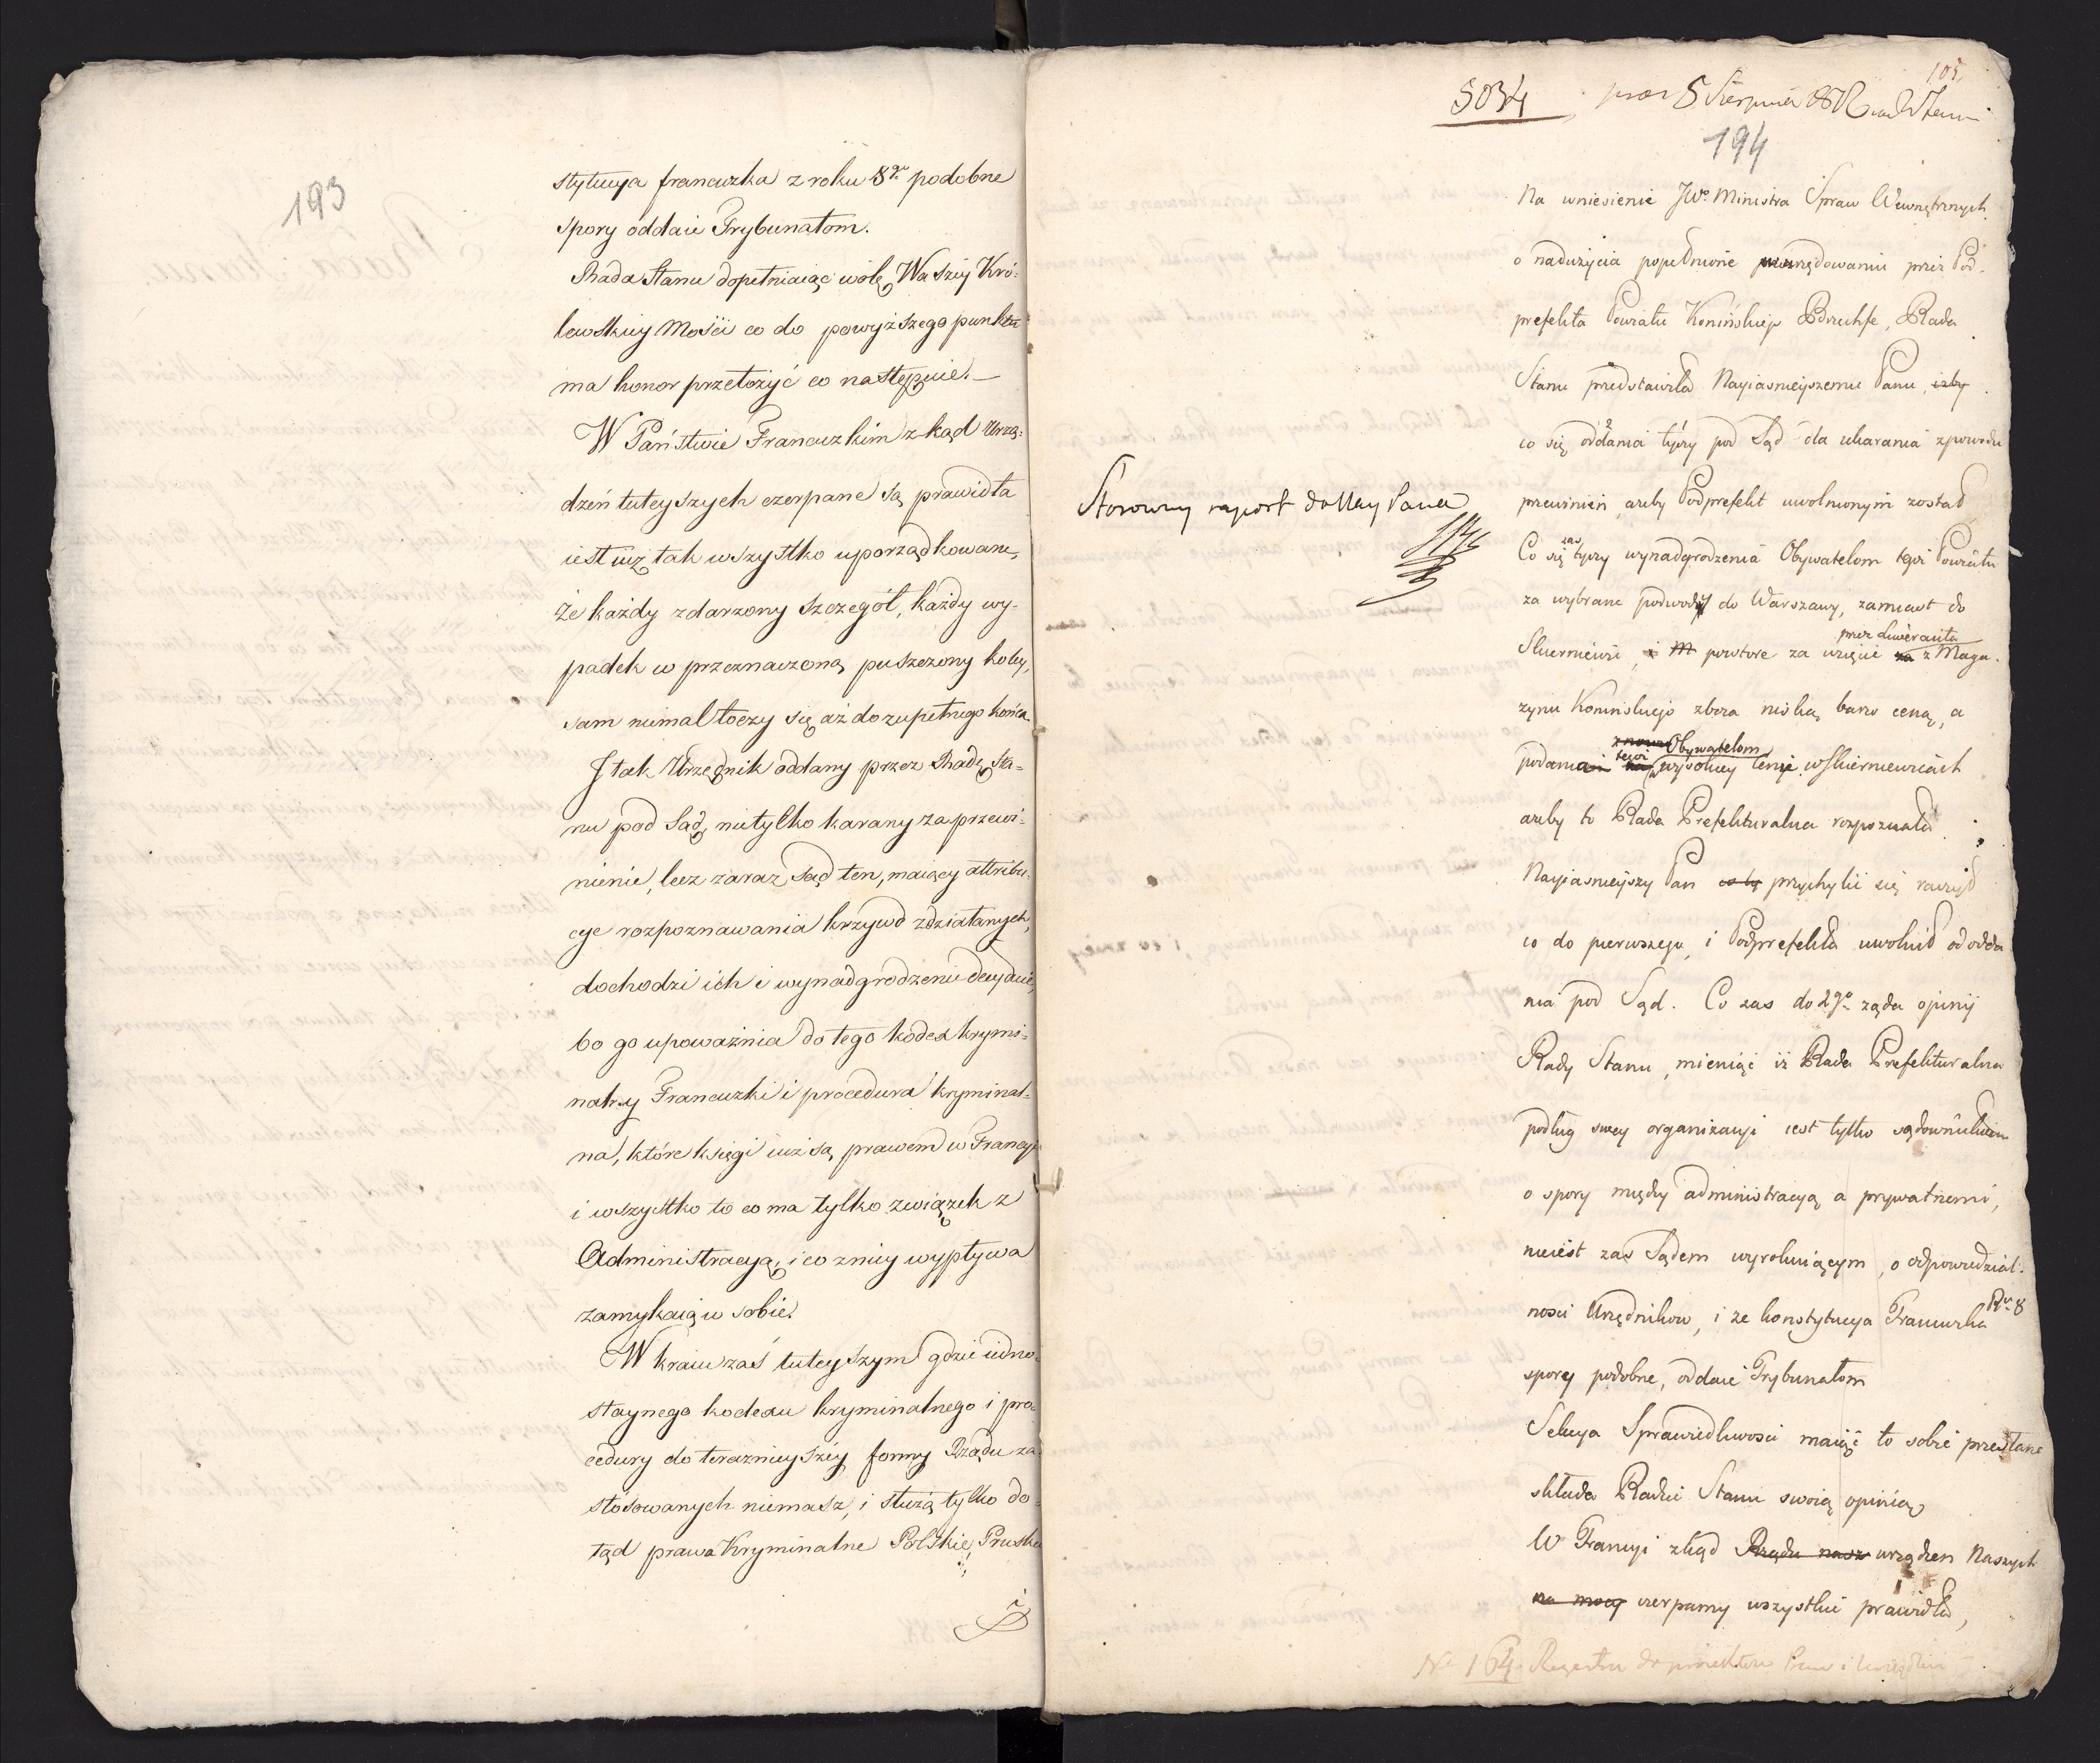 193
stytucya francuzka z roku 8go podobne
spory oddaie Trybunałom.
Rada Stanu dopełniaiąc wolę Waszéy Kró-
lewskiey Mości co do powyższego punktu
ma honor przełożyć co następuie.—
W Państwie Francuzkim z kąd Urzą-
dzeń tuteyszych czerpane są prawidła
iest iuz tak wszystko uporządkowane,
że każdy zdarzony szczegół, każdy wy-
padek w przeznaczoną puszczony koley,
sam niemal toczy się aż do zupełnego końca.
I tak Urzędnik oddany przez Radę Sta-
nu pod Sąd, nietylko karany za przewi-
nienie, lecz zaraz Sąd ten, maiący attribu-
cye rozpoznawania krzywd zdziałanych,
dochodzi ich i wynadgrodzenie decyduie,
bo go upoważnia do tego kodex krymi-
nalny Francuzki i procedura kryminal-
na, które księgi iuż są prawem w Francyi
i wszystko to co ma tylko związek z
Administracyą, i co z niey wypływa
zamykaią w sobie.
W kraiu zaś tuteyszym gdzie iedno-
staynego kodexu kryminalnego i pro-
cedury do teraznieyszéy formy Rządu za-
stosowanych niemasz, i służą tylko do-
tąd prawa Kryminalne Polskie, Pruskie
i
105.
5034 5 Sierpnia
194
Na wniesienie JWo Ministra Spraw Wewnętrznych
o nadużycia popełnione w urzędowaniu przez Pod-
prefekta Powiatu Konińskiego, Rada
Stanu przedstawiła Nayiasnieyszemu Panu, iżby
co się oddania tyczy pod Sąd dla ukarania z powodu
przewinień, azeby Podprefekt uwolnionym został
Stosowny raport do Nay Pana
Co się zas tyczy wynadgrodzenia Obywatelom tegoż Powiatu
za wybrane podwody do Warszawy, zamiast do
przez Liweranta
Skierniewic, i powtore za wzięcie z Maga-
zynu Konińskiego zboża niską barzo ceną, a
Obywatelom
podania tegoż w wysokiey cenie w Skierniewicach
azeby to Rada Prefekturalna rozpoznała
Nayiasnieyszy Pan przychylić się raczył
co do pierwszego, i Podprefekta uwolnił od odda
nia pod Sąd. Co zas do 2go ząda opinij
Rady Stanu, mieniąc iż Rada Prefekturalna
podług swey organizacyi iest tylko sądownictwem
o spory między administracyą a prywatnemi,
nieiest zas Sądem wyrokuiącym, o odpowiedzial-
nosci Urzędnikow, i ze konstytucya Francuzka Ru 8
spory podobne, oddaie Trybunałom
Sekcya Sprawiedliwosci maiąc to sobie przesłane
składa Radzie Stanu swoią opinią
W Francyi zkąd Rządu nasz urządzen Naszych
na mocy czerpamy wszystkie prawidła,
No 164 Regestru do proiektow Praw i Urządzen